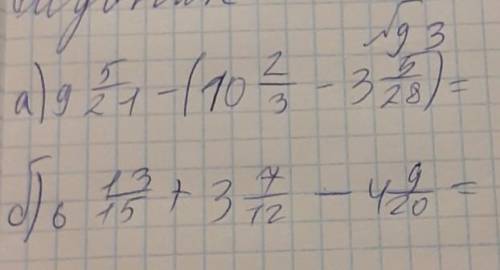 √93
а) 9 5/21 - (10 2/3 - 3 5/28) =
б) 6 13/15 + 3 7/12 - 4 9/20 =